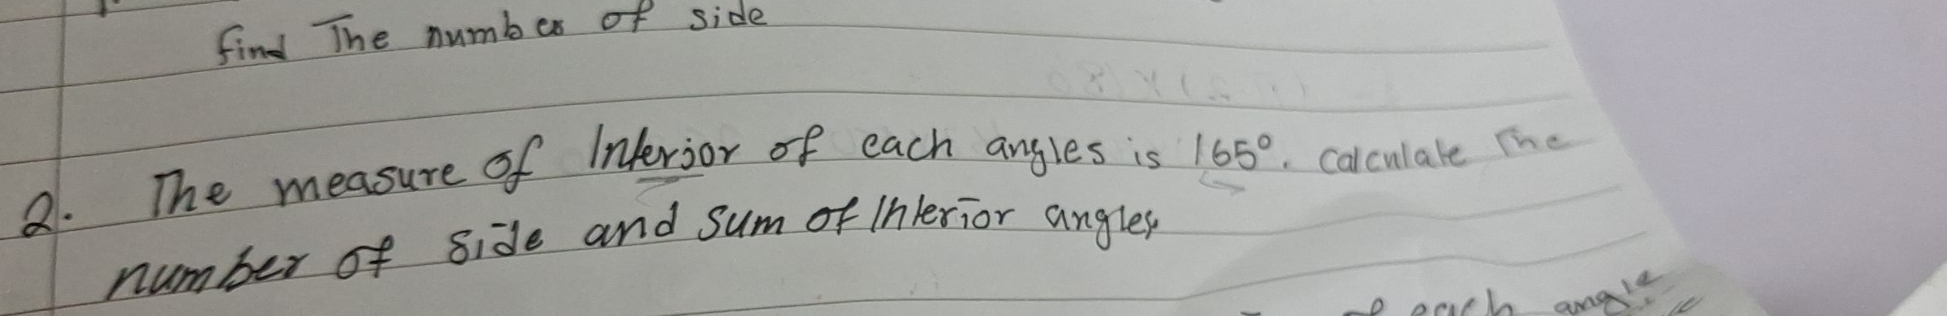 find The number of side
2. The measure of Interior of each angles is 165°. Calculate The
number of side and sum of Interior angles
of each angle